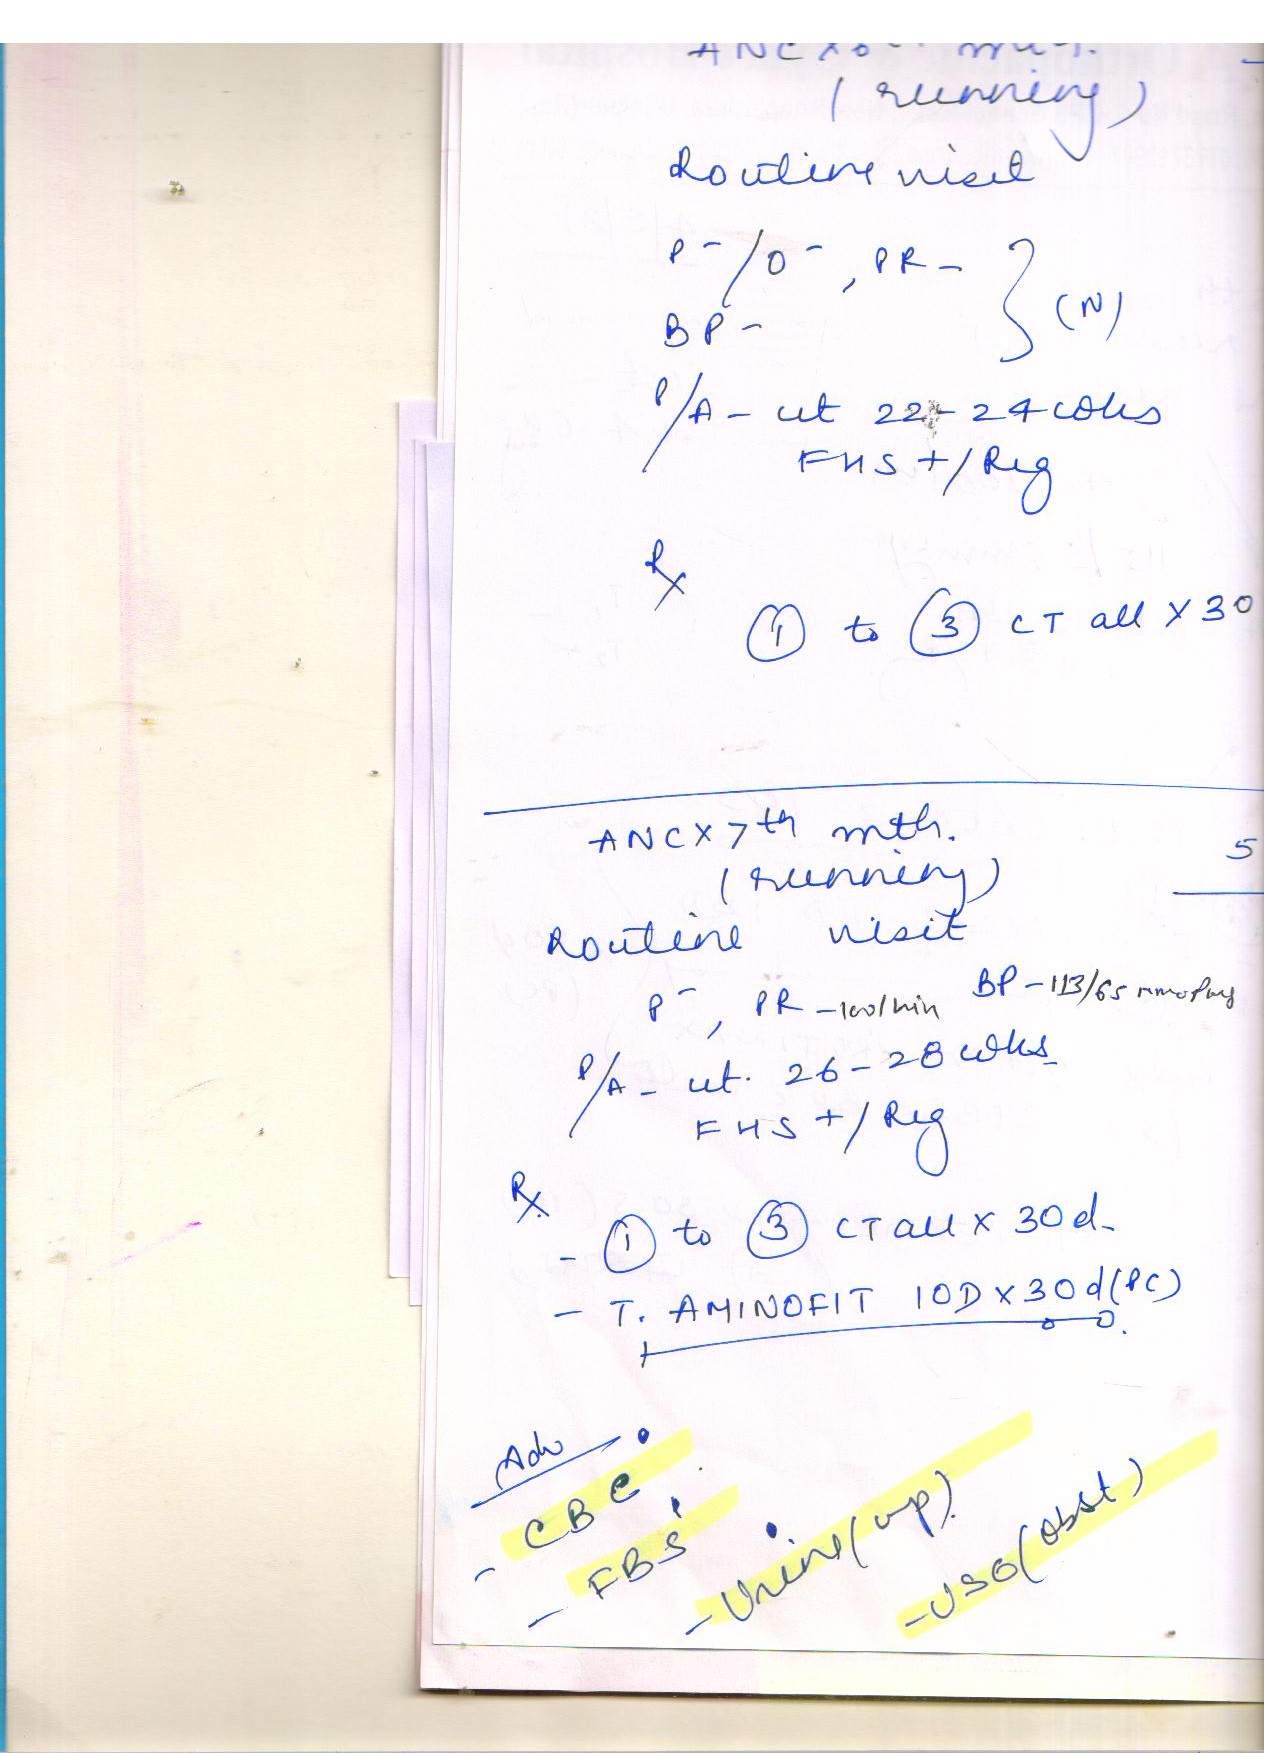 ANC X 6th mth.
(running)
Routine visit
P-/O-, PR -
BP - } (N)
P/A - ut 22 - 24 wks
FHS +/Reg
Rx
① to ③ CT all X 30
ANC X 7th mth.
5
(running)
Routine visit
P-, PR - 100/min BP - 113/65 mmofHg
P/A - ut. 26 - 28 wks
FHS +/Reg
Rx
- ① to ③ CT all X 30d.
- T. AMINOFIT 1OD X 30d (PC)
Adv
- CBC
- FBS
- Urine (
- USG (obst)